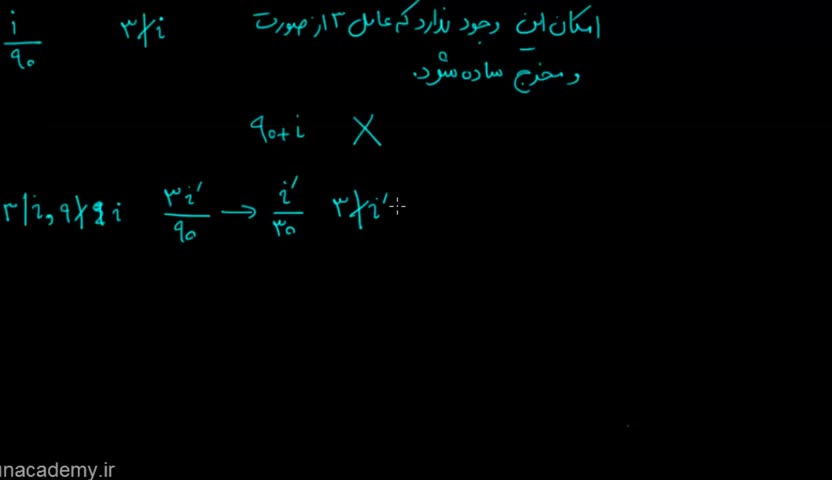 i/۹۰ ۳∤i امکان این وجود ندارد که عامل ۳ از صورت
و مخرج ساده شود.
۹۰+i X
۳|i, ۹∤i ۳i′/۹۰ → i′/۳۰ ۳∤i′
unacademy.ir